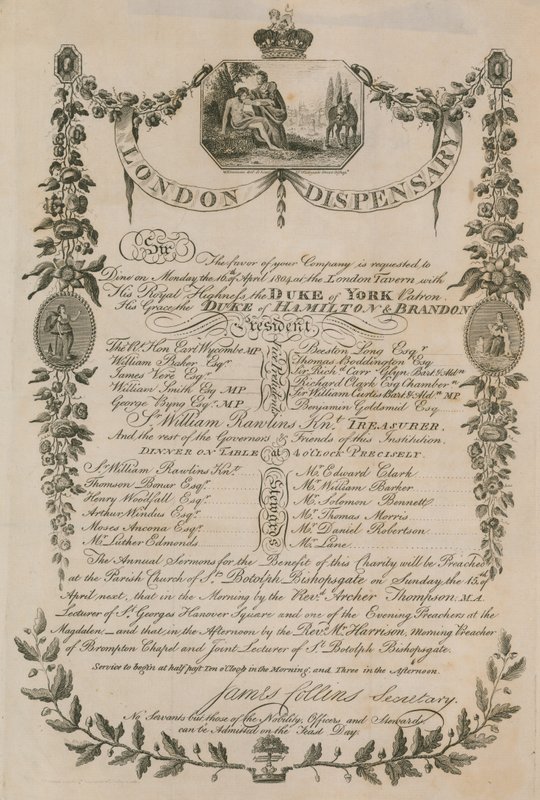 LONDON DISPENSARY
Sir
The favor of your Company is requested to
Dine on Monday, the 16th of April 1804, at the London Tavern, with
His Royal Highness the DUKE of YORK Patron.
His Grace the DUKE of HAMILTON & BRANDON
President
Vice Presidents
The Rt. Hon. Earl Wycombe MP.
William Baker Esqr.
James Vere Esqr.
William Smith Esq. MP.
George Byng Esqr. MP.
Beeston Long Esqr.
Thomas Boddington Esq.
Sir Richd. Carr Glyn Bart. & Aldn.
Richard Clark Esq. Chamberln.
Sir William Curtis Bart. & Aldn. MP.
Benjamin Goldsmid Esq.
Sr. William Rawlins Knt. TREASURER.
And the rest of the Governors & Friends of this Institution.
DINNER ON TABLE at 4 o'CLOCK PRECISELY.
Stewards
Sr. William Rawlins Knt.
Thomson Bonar Esqr.
Henry Woodfall Esqr.
Arthur Windus Esqr.
Moses Ancona Esqr.
Mr. Luther Edmonds
Mr. Edward Clark
Mr. William Barker
Mr. Solomon Bennett
Mr. Thomas Morris
Mr. Daniel Robertson
Mr. Lane
The Annual Sermons for the Benefit of this Charity will be Preached
at the Parish Church of St. Botolph, Bishopsgate on Sunday, the 15th of
April next, that in the Morning by the Revd. Archer Thompson, M.A.
Lecturer of St. Georges Hanover Square and one of the Evening Preachers at the
Magdalen,—and that in the Afternoon by the Revd. Mr. Harrison, Morning Preacher
of Brompton Chapel and Joint Lecturer of St. Botolph Bishopsgate.
Service to begin at half past Ten o'Clock in the Morning, and Three in the Afternoon.
James Collins Secretary.
No Servants but those of the Nobility, Officers and Stewards,
can be Admitted on the Feast Day.